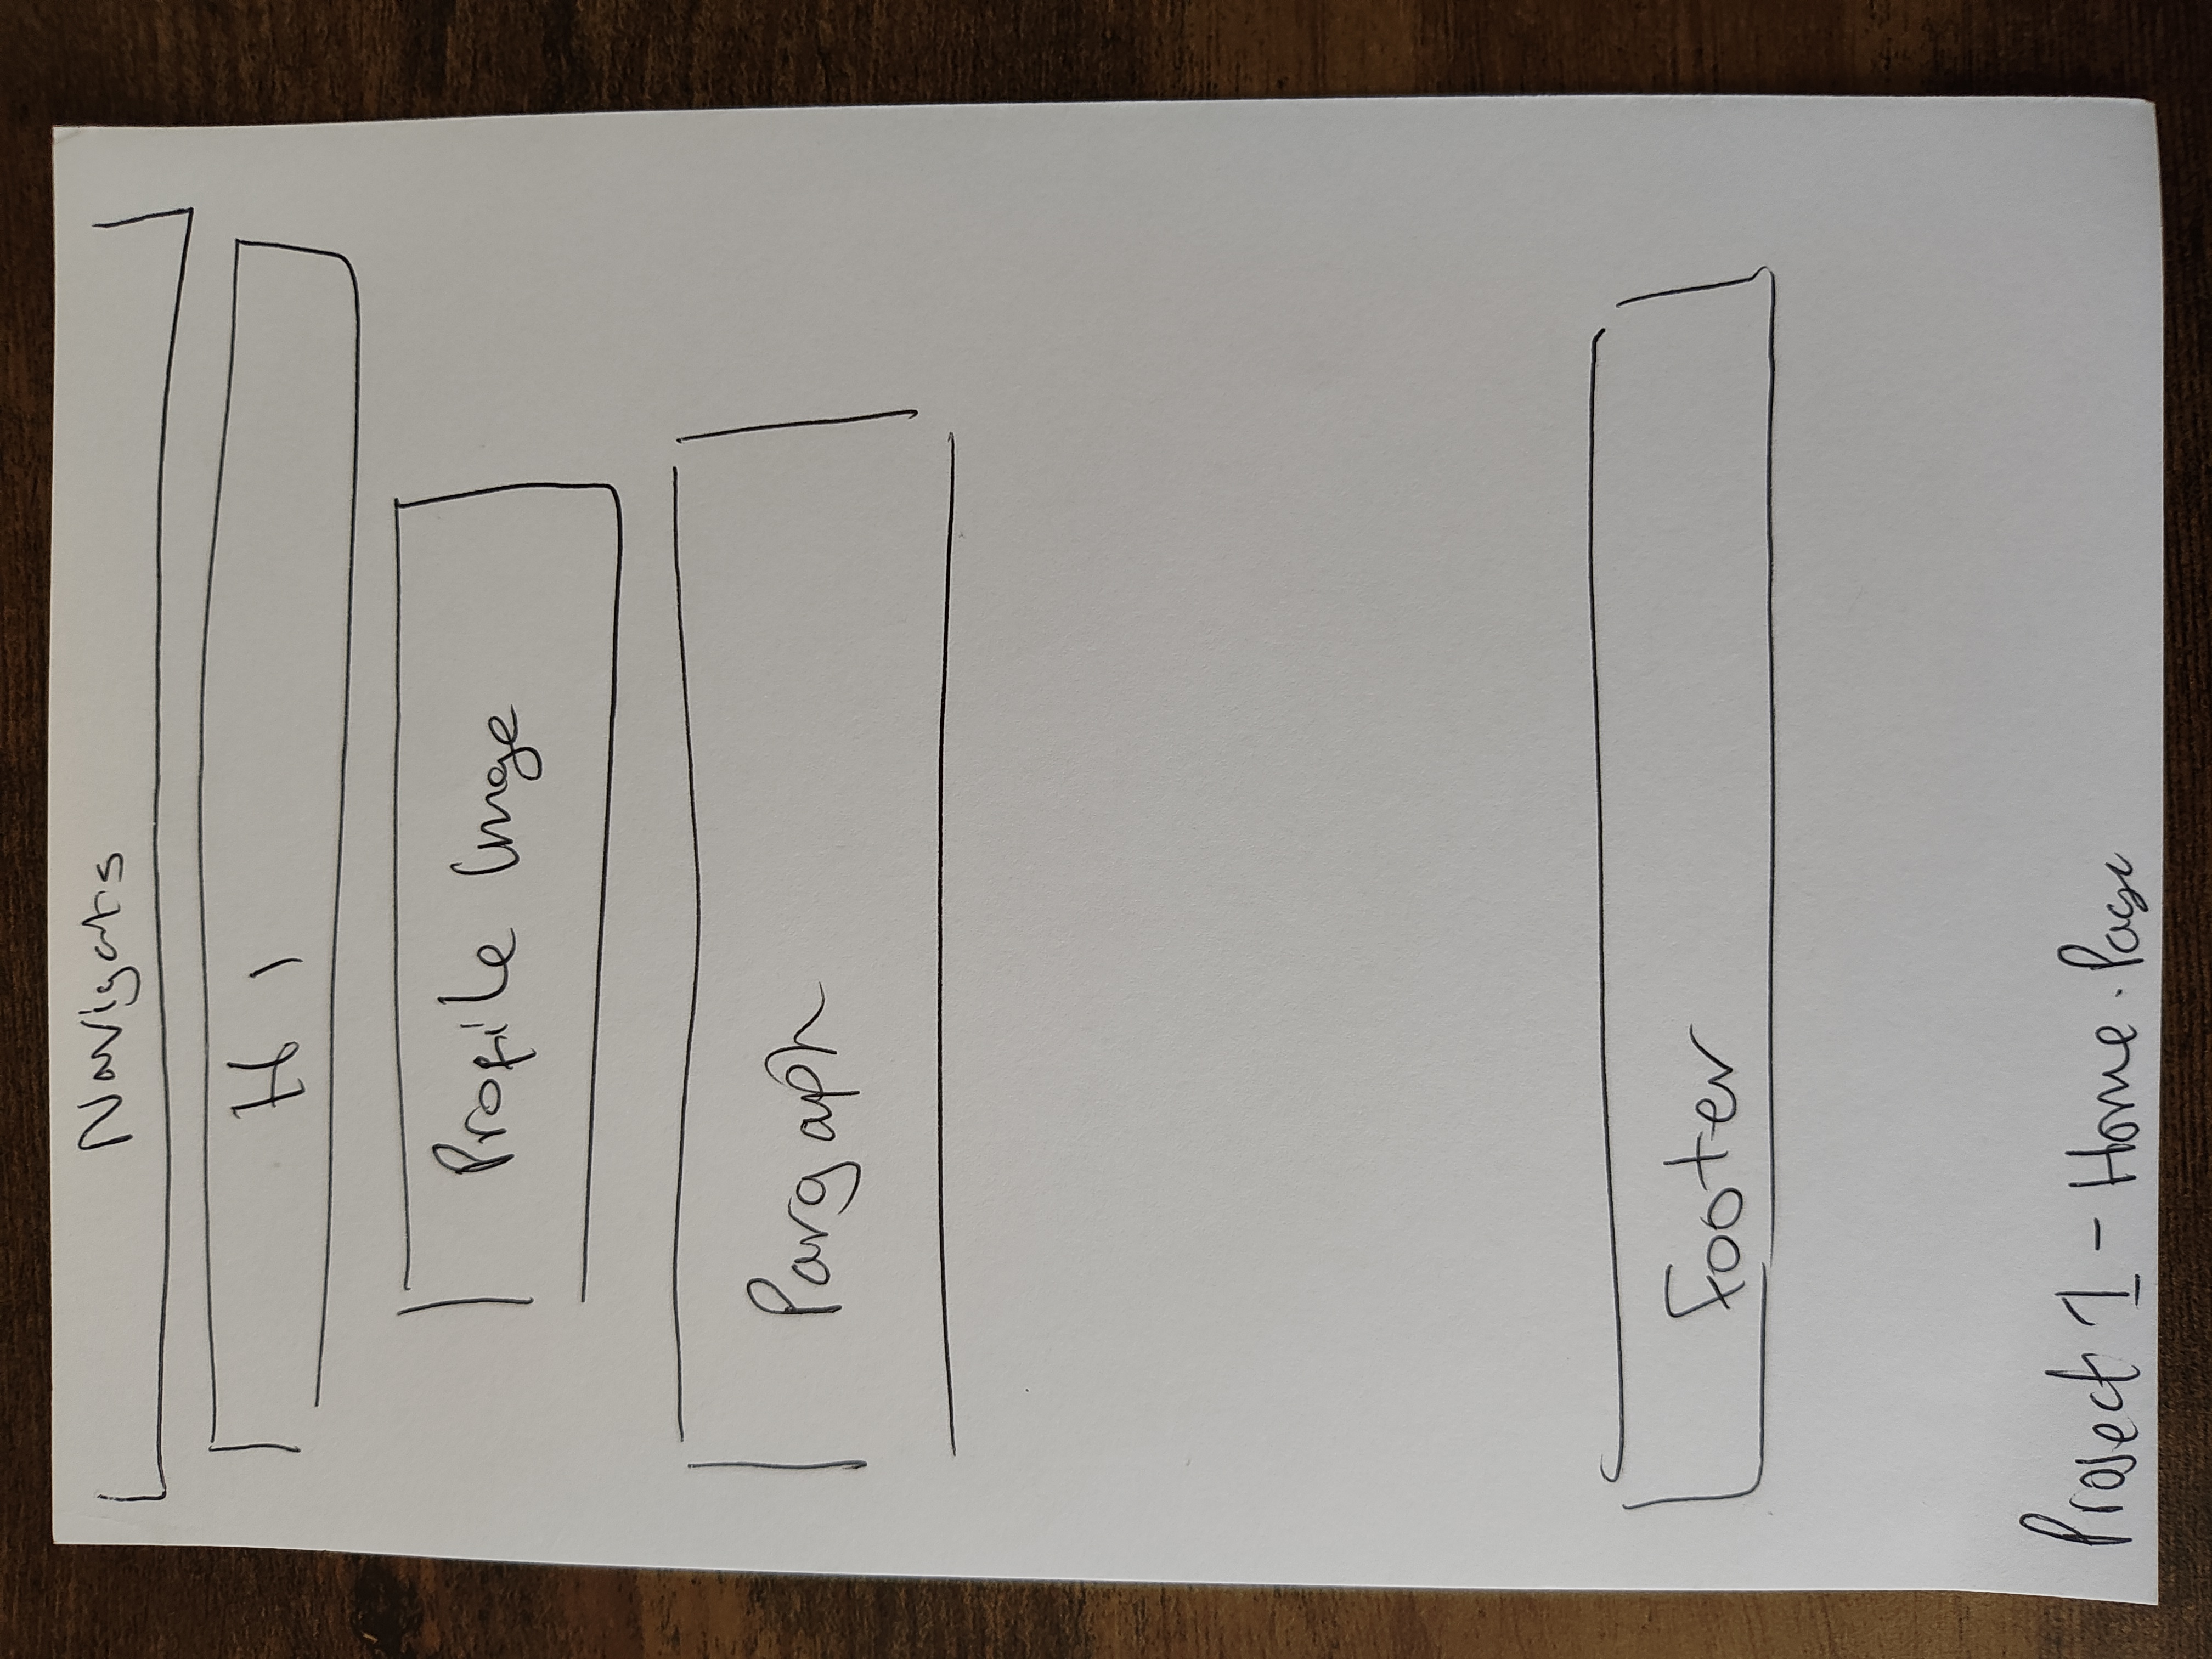 Navigats
H 1
Profile Image
Pargaph
Footer
Project 1 - Home . Page